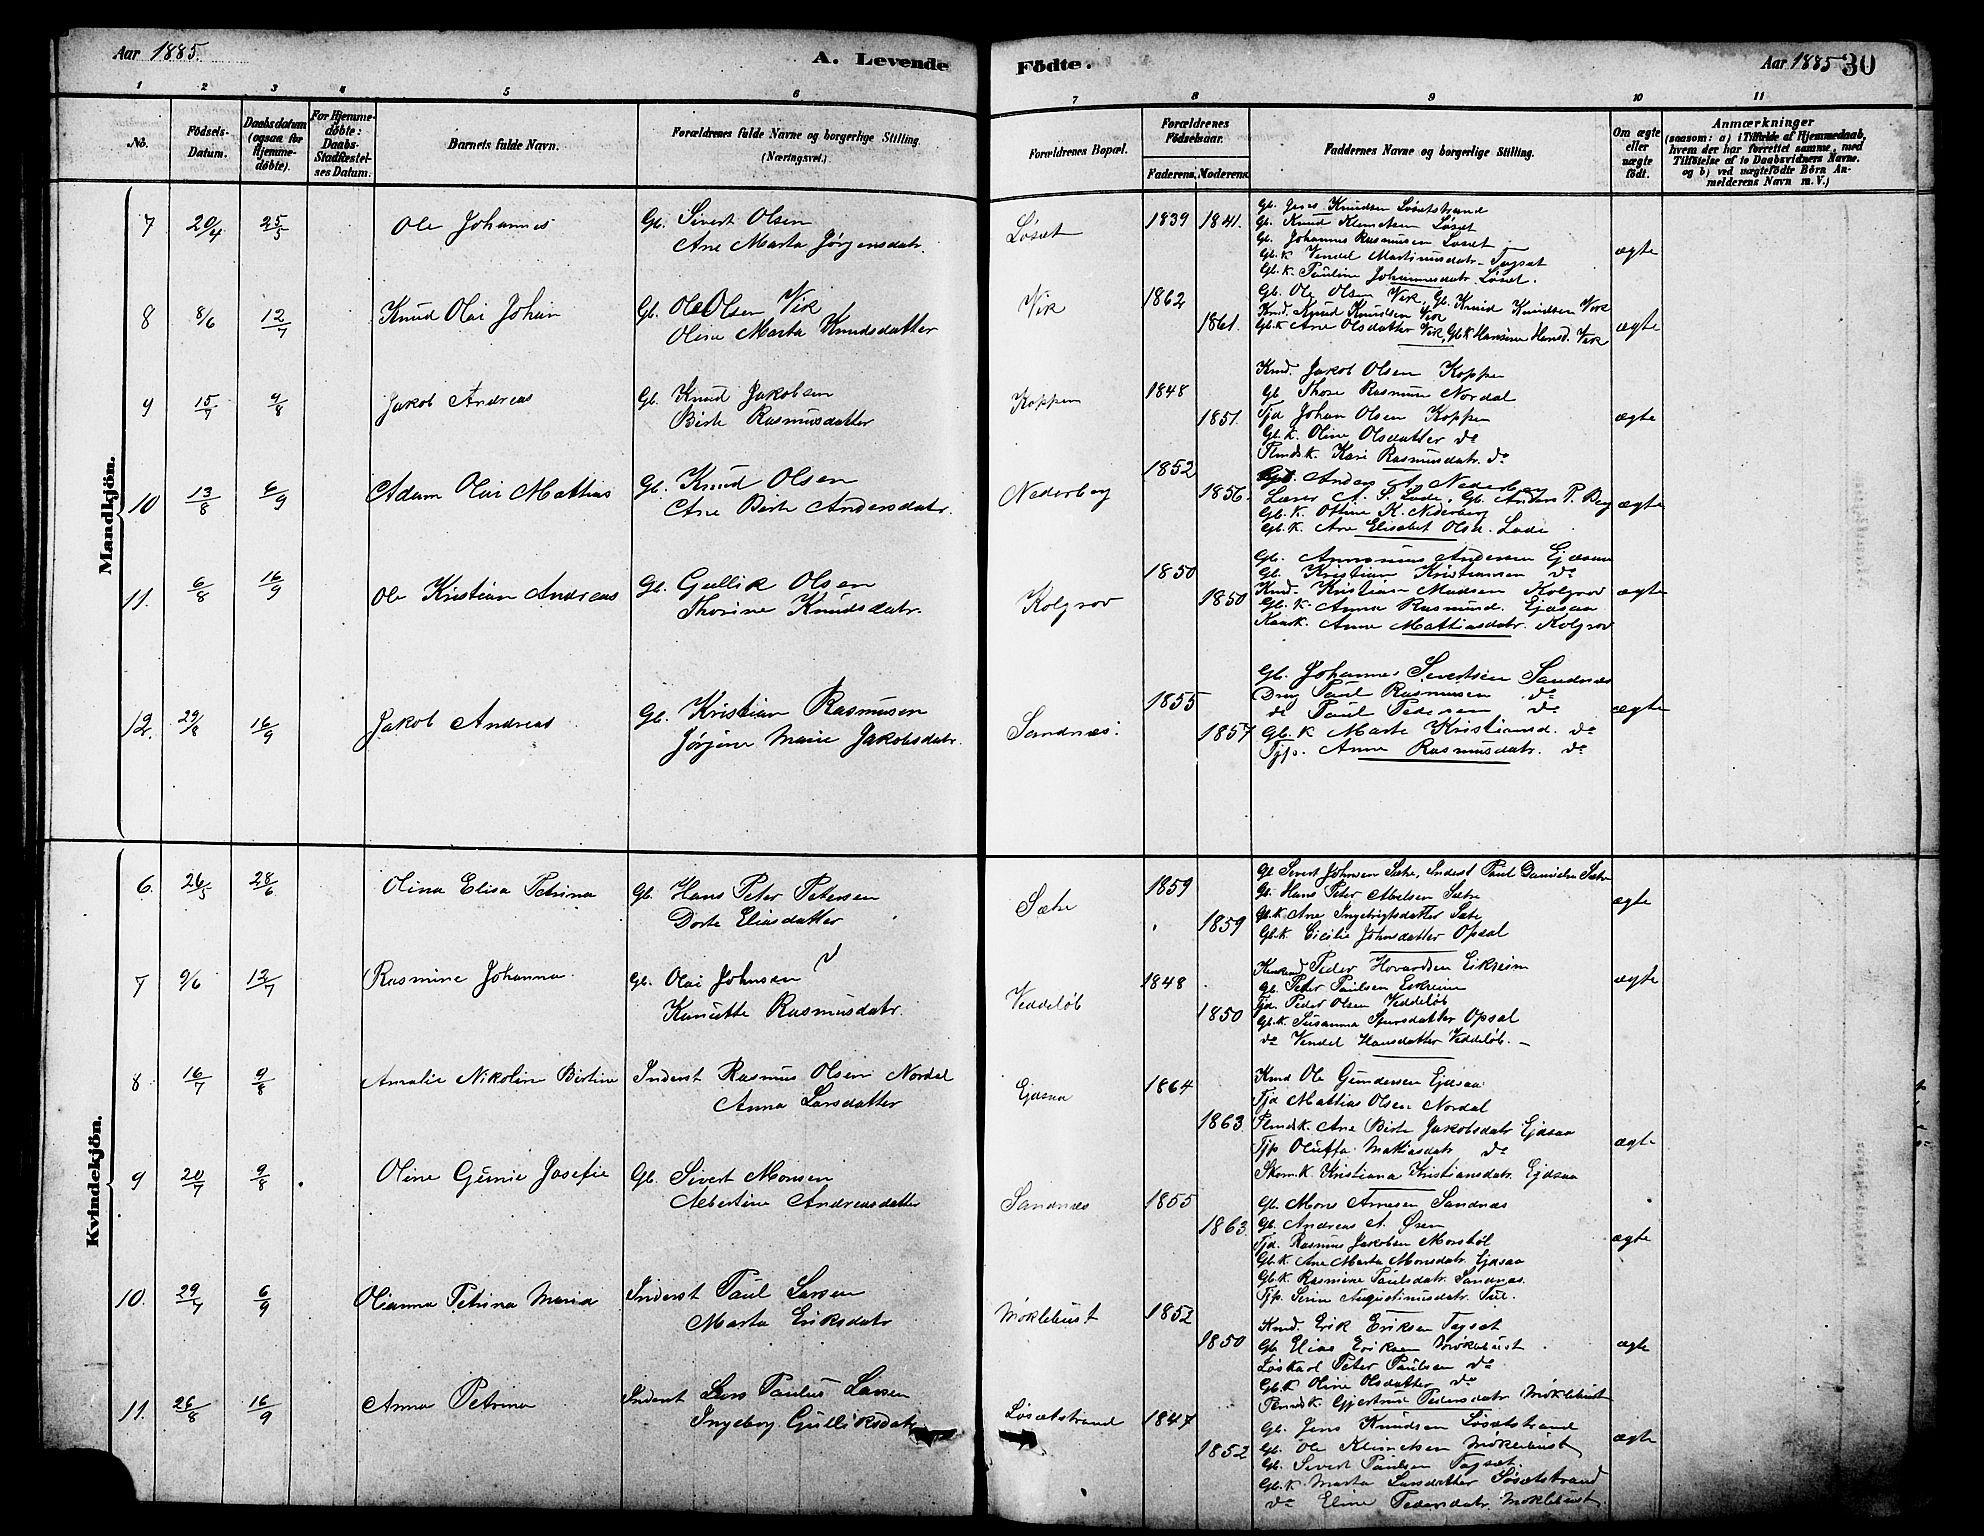 Aar 1885.
A. Levende
Födte.
Aar 1885
30
1 2 3 4 5 6 7 8 9 10 11
No.
Födsels-Datum.
Daabsdatum (ogsaa for Hjemmedøbte).
For Hjemmedøbte: Daabs-Stadfæstelses Datum.
Barnets fulde Navn.
Forældrenes fulde Navne og borgerlige Stilling
(Næringsvei.)
Forældrenes Bopæl.
Forældrenes Födselsaar.
Faderens. Moderens.
Faddernes Navne og borgerlige Stilling.
Om ægte eller uægte födt.
Anmærkninger
(saasom: a) i Tilfælde af Hjemmedaab, hvem der har forrettet samme, med Tilföielse af to Daabsvidners Navne. og b) ved uægtefödte Börn Anmelderens Navn m. V.)
Mandkjön.
7 20/4 25/5 Ole Johannes Gb. Sivert Olsen
Ane Marta Jørgensdatr.
Løsæt 1839 1841.
Gb. Jens Knudsen Løsætstrand
Gb. Knud Klemetsen Løsæt
Gb. Johannes Rasmusen Løsæt
Gb. K. Vendel Martinusdatr. Tagsæt
Gb. K. Pauline Johannesdatr. Løsæt.
ægte
8 8/6 12/7 Knud Olai Johan Gb. Ole Olsen Vik
Oline Marta Knudsdatter
Vik 1862 1861.
Gb. Ole Olsen Vik, Gb. Knud Knudsen Vik
Knd. Knud Knudsen Vik
Gb. K. Ane Olsdatter Vik, Gb. K. Hansine Hansd. Vik
ægte
9 15/7 9/8 Jakob Andreas Gb. Knud Jakobsen
Birte Rasmusdatter
Koppen 1848 1851.
Knd. Jakob Olsen Koppen
Gb. Thore Rasmusen Nordal
Tjd Johan Olsen Koppen
Gb. K. Oline Olsdatter do
Kari Rasmusdatr. do
ægte
10 13/8 6/9 Adam Olai Mattias Gb. Knud Olsen
Ane Birte Andersdatr.
Nederberg 1852 1856.
Gb. Anders A. Nederberg
Lærer A. S. Lade, Gb. Anders P. Berg
Gb. K. Ottine K. Nederberg
Gb. K. Ane Elisabet Olsd. Lade
ægte
11. 6/8 16/9 Ole Kristian Andreas Gb. Gullik Olsen
Thorine Knudsdatr.
Kolgrov 1850 1850
Gb. Ammonius Andersen Ejdsaa
Gb. Kristian Kristiansen do
Knd. Kristian Madsen Kolgrov
Gb. K. Anna Rasmusd. Ejdsaa
Anne Mattiasdatr. Kolgrov
ægte
12. 29/8 16/9 Jakob Andreas Gb. Kristian Rasmusen
Jørgine Marie Jakobsdatr.
Sandnæs. 1855 1857
Gb. Johannes Sivertsen Sandnæs
Dreng Paul Rasmusen do
do Paul Pedersen do
Gb. K. Marte Kristiansd. do
Tjp. Anne Rasmusdatr. do
ægte
Kvindekjön.
6. 26/5 28/6 Olina Elisa Petrina Gb. Hans Peter Petersen
Dorte Eliasdatter
Sætre 1859 1859
Gb Sivert Johnsen Sætre, Inderst Paul Danielsen Sætre
Gb. Hans Peter Abelsen Sætre
Gb. K. Ane Ingebrigtsdatter Sætre
Gb. K. Cicilie Johnsdatter Opsal
ægte
7 9/6 12/7 Rasmine Johanna Gb. Olai Johnsen
Knutte Rasmusdatr.
Veddeløb 1848 1850
Peder Hovardsen Eikreim
Gb. Peter Paulsen Eikreim
Tjd. Peder Olsen Veddeløb
Gb. K. Susanna Sjursdatter Opsal
do Vendel Hansdatter Veddeløb.
ægte
8 16/7 9/8 Amalie Nikoline Bertine Inderst Rasmus Olsen Nordal
Anna Larsdatter
Ejdsaa 1864 1863
Knud Ole Gundersen Ejdsaa
Tjd Mattias Olsen Nordal
Ane Birte Jakobsdatr. Ejdsaa
Tjp Oluffa Mattiasdatr do
Skom. K. Kristiana Kristiansdatr. Ejdsaa
ægte
9 20/7 9/8 Oline Gunie Josefie Gb. Sivert Monsen
Albertine Andreasdatter
Sandnæs 1855 1863
Gb. Mons Arnesen Sandnæs
Gb. Andreas A. Øren
Tjd. Rasmus Jakobsen Morsbøl
Gb. K. Ane Marta Monsdatr. Ejdsaa
Gb. K. Rasmine Paulsdatr. Sandnæs.
Tjp. Serin Augustinusdatr.
ægte
10. 29/7 6/9 Olianna Petrina Maria Inderst Paul Larsen
Marta Eriksdatr
Møklebust 1852 1850
Knud. Erik Eriksen Tagsæt
Gb. Elias Eriksen Møklebust
Løskarl Peter Paulsen do
Gb. K. Oline Olsdatter do
Gjertrud Pedersdatr. Møklebust
ægte
11. 26/8 16/9 Anna Petrina Inderst Lars Paulus Larsen
Ingeborg Gulliksdatr
Løsætstrand 1847 1852
Gb. Jens Knudsen Løsætstrand
Gb. Ole Klemetsen Møklebust
Gb. Sivert Paulsen Tagsæt.
Gb. K. Marta Larsdatter Løsætstrand
do Eline Pedersdatr. Møklebust
ægte